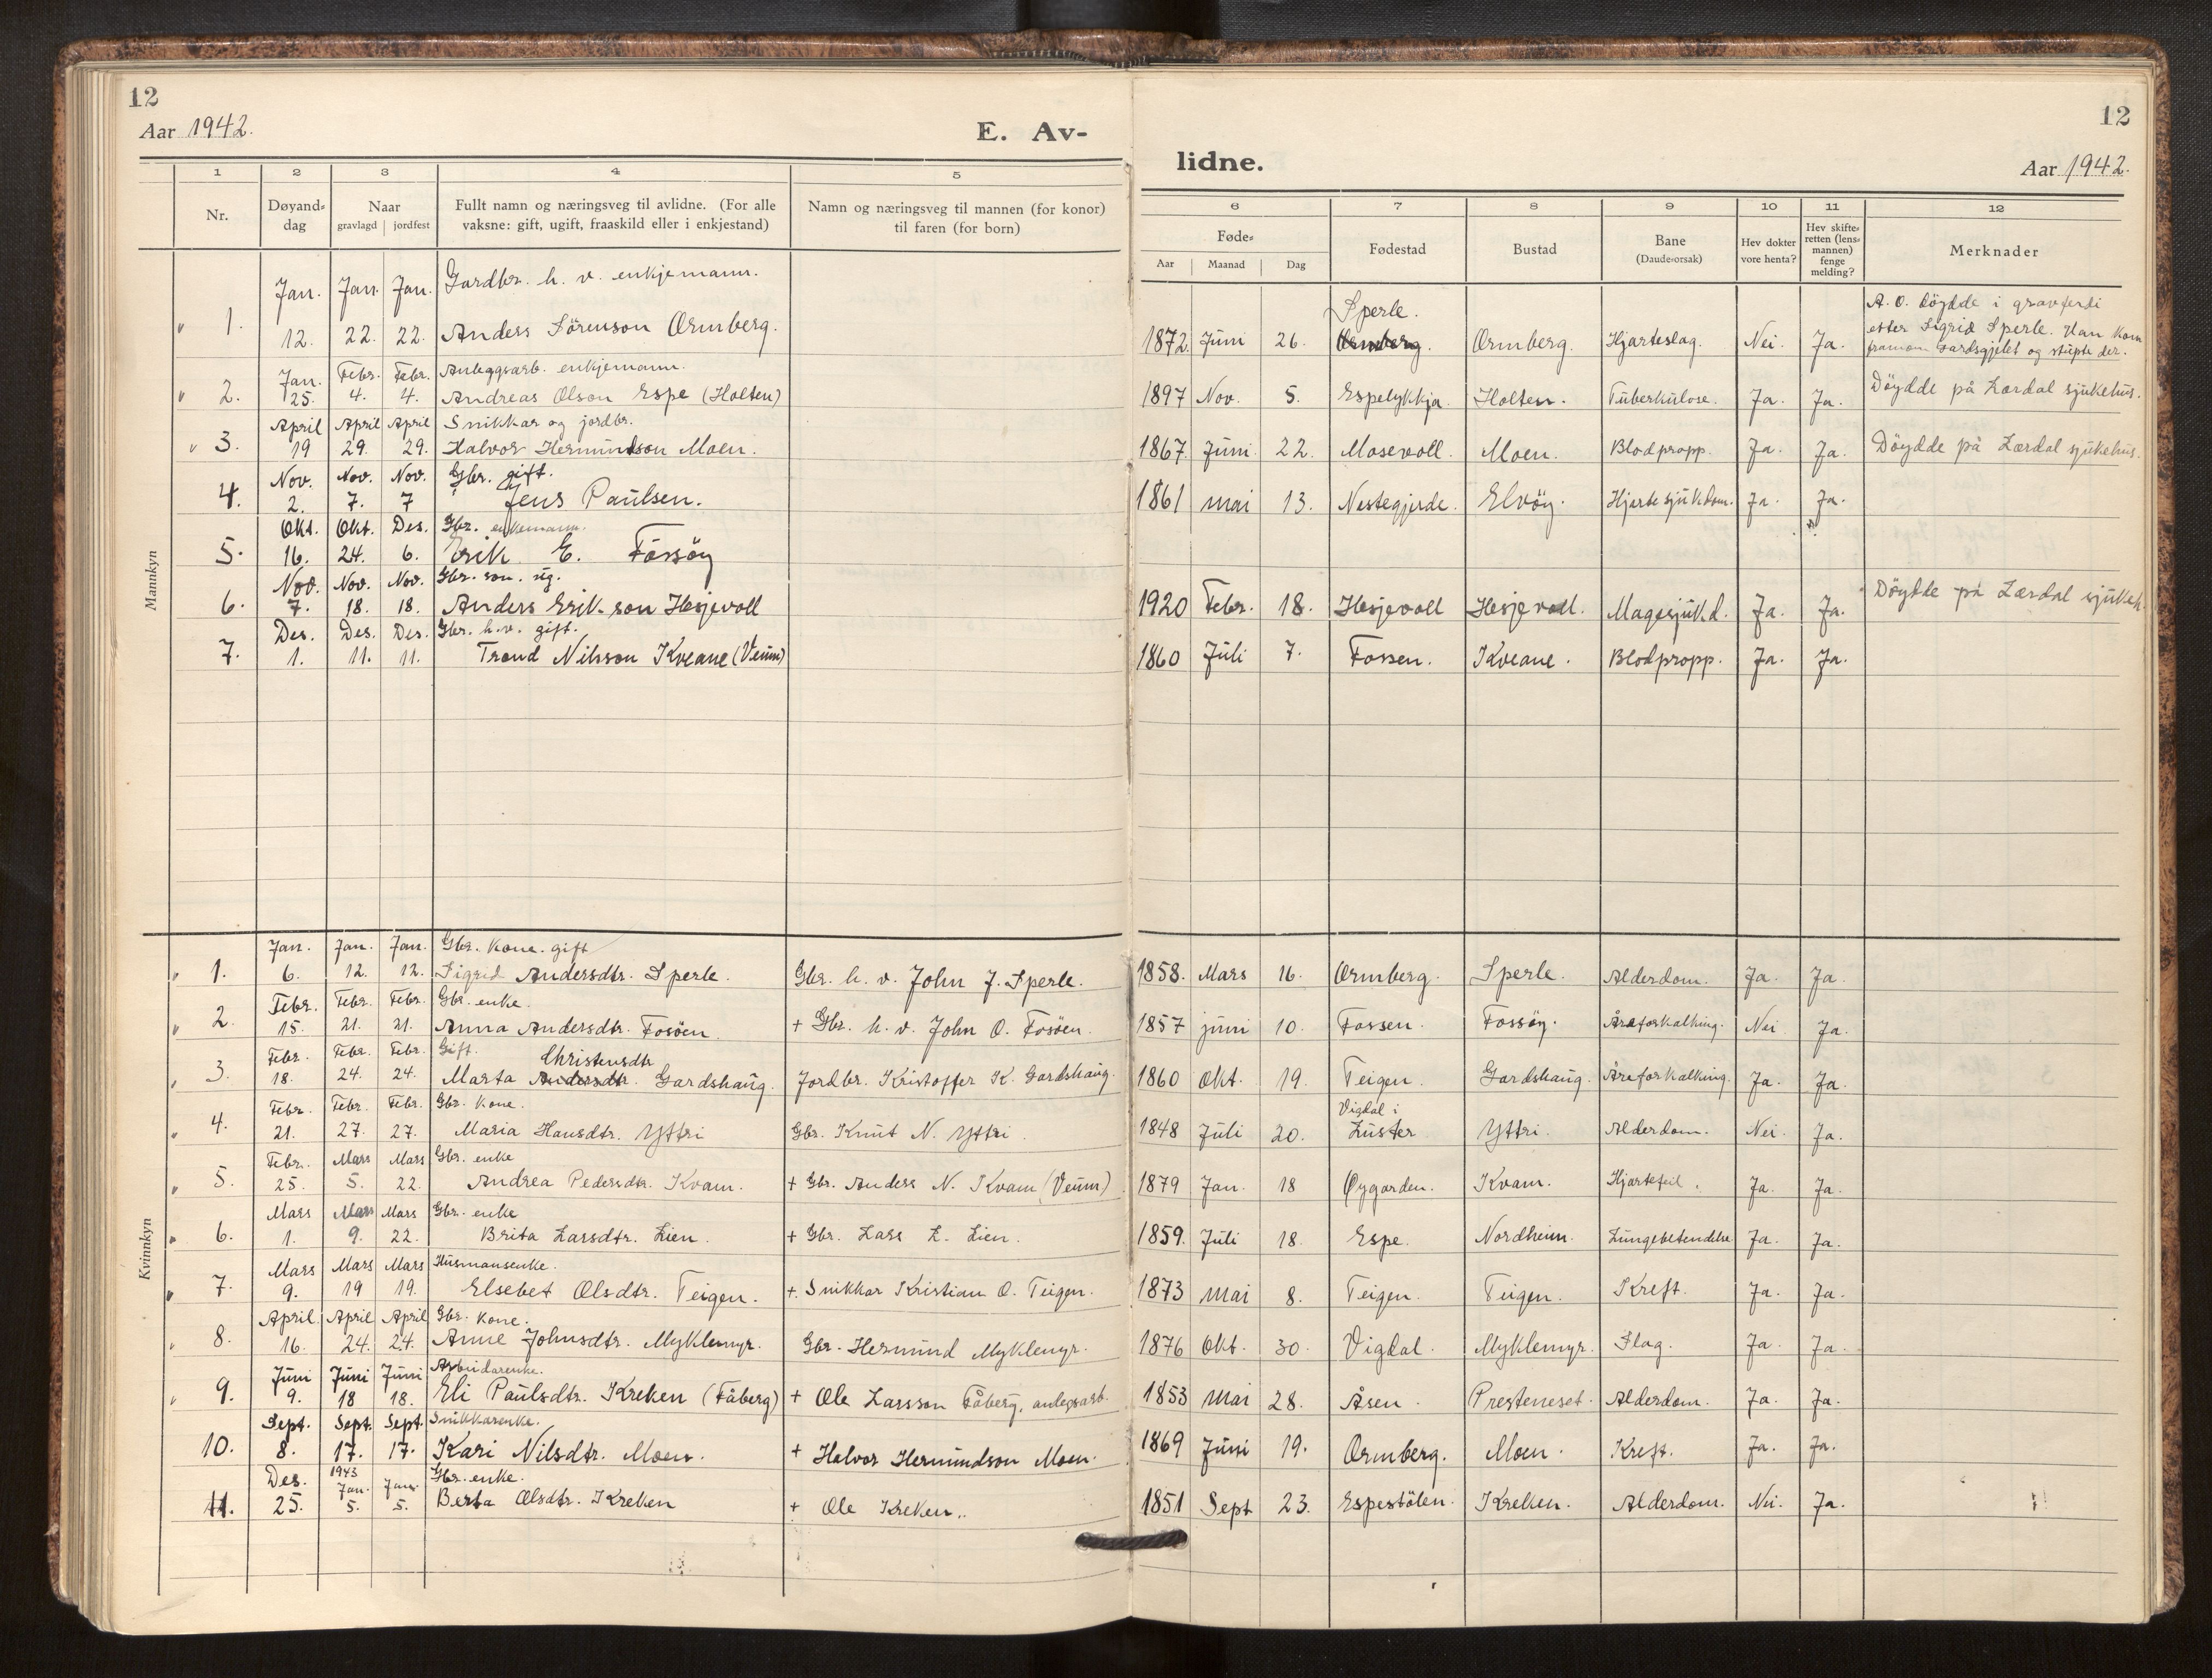 12
Aar 1942.
E. Av-
1 2 3 4 5
Nr. Døyand-dag Naar gravlagd jordfest Fullt namn og næringsveg til avlidne. (For alle vaksne: gift, ugift, fraaskild eller i enkjestand) Namn og næringsveg til mannen (for konor) til faren (for born)
Mannkyn
Jan. Jan. Jan. Gardbr. h. v. enkjemann.
1. 12. 22. 22. Anders Sörenson Ormberg.
Jan. Febr. Febr. Anleggsarb. enkjemann.
2. 25. 4. 4. Andreas Olson Espe (Holten)
April April April Snikkar og jordbr.
3. 19 29. 29. Halvor Hermundson Moen.
Nov. Nov. Nov. Gbr. gift.
4. 2. 7. 7 Jens Paulsen.
Okt. Okt. Des. Gbr. enkemann.
5. 16. 24. 6. Erik E. Fossöy
Nov. Nov. Nov. Gbr. son. ug.
6. 7. 18. 18. Anders Erikson Hesjevoll
Des. Des. Des. Gbr. h.v. gift.
7. 1. 11. 11. Trond Nilsson Kveane (Veum)
Kvinnkyn
Jan. Jan. Jan. Gbr. kone. gift
1. 6. 12. 12. Sigrid Andersdtr. Sperle. Gbr. h. v. John J. Sperle.
Febr. Febr. Febr. Gbr. enke.
2. 15. 21. 21. Anna Andersdtr. Fosöen. + Gbr. h. v. John O. Fosöen.
Febr. Febr. Febr. Gift. Christensdtr
3. 18. 24. 24. Marta Andersdtr. Gardshaug. Jordbr. Kristoffer K. Gardshaug.
Febr. Febr. Febr. Gbr. kone.
4. 21. 27. 27. Maria Hansdtr. Yttri Gbr. Knut N. Yttri.
Febr. Mars Mars Gbr. enke
5. 25. 5. 22. Andrea Pedersdtr. Kvam. + Gbr. Anders N. Kvam (Veum)
Mars Mars Mars Gbr. enke
6. 1. 9. 22. Brita Larsdtr. Lien. + Gbr. Lars L. Lien.
Mars Mars Mars Husmansenke.
7. 9. 19 19. Elsebet Olsdtr. Teigen. +. Snikkar Kristian O. Teigen.
April April April Gbr. kone.
8. 16. 24. 24. Anne Johnsdtr. Myklemyr. Gbr. Hermund Myklemyr.
Juni Juni Juni Arbeidarenke.
9. 9. 18 18. Eli Paulsdtr. Kreken (Fåberg) + Ole Larsson Fåberg, anlegsarb.
Sept. Sept. Sept. Snikkarenke.
10. 8. 17. 17. Kari Nilsdtr. Moen. + Halvor Hermundson Moen.
Des. 1943 Jan. Jan. Gbr. enke.
11. 25. 5. 5. Berta Olsdtr. Kreken + Ole Kreken.
12
lidne.
Aar 1942.
6 7 8 9 10 11 12
Føde- Aar Maanad Dag Fødestad Bustad Bane (Daude-orsak) Hev dokter vore henta? Hev skifte-retten (lens-mannen) fenge melding? Merknader
Sperle. A. O. döydde i gravferdi
1872. Juni 26. Ormberg. Ormberg. Hjarteslag. Nei. Ja. etter Sigrid Sperle. Han kom
framom Gardsgjelet og stupte der.
1897 Nov. 5. Espelykkja. Holten. Tuberkulose. Ja. Ja. Döydde på Lærdal sjukehus.
1867. Juni 22. Mosevoll. Moen. Blodpropp. Ja. Ja. Döydde på Lærdal sjukehus.
1861 mai 13. Nestegjerde. Elvöy. Hjertesjukdom. Ja. Ja.
1920 Febr. 18. Hesjevoll Hesjevoll. Magesjukd. Ja. Ja. Döydde på Lærdal sjukeh.
1860 Juli 7. Fossen. Kveane. Blodpropp. Ja. Ja.
1858. Mars 16. Ormberg. Sperle. Alderdom. Ja. Ja.
1857 juni 10. Fossen. Fossöy. Åreforkalking. Nei Ja.
1860 Okt. 19. Teigen. Gardshaug. Åreforkalking. Ja. Ja.
Vigdal i
1848 Juli 20. Luster Yttri. Alderdom. Nei. Ja.
1879 Jan. 18 Øygarden. Kvam. Hjartefeil. Ja. Ja.
1859. Juli 18. Espe. Nordheim. Lungebetendelse Ja. Ja.
1873 Mai 8. Teigen. Teigen. Kreft. Ja. Ja.
1876 Okt. 30. Vigdal. Myklemyr. Slag. Ja. Ja.
1853 Mai 28. Åsen. Presteneset. Alderdom. Ja. Ja.
1869 Juni 19. Ormberg. Moen. Kreft. Ja. Ja.
1851 Sept 23. Espestölen. Kreken. Alderdom. Nei. Ja.